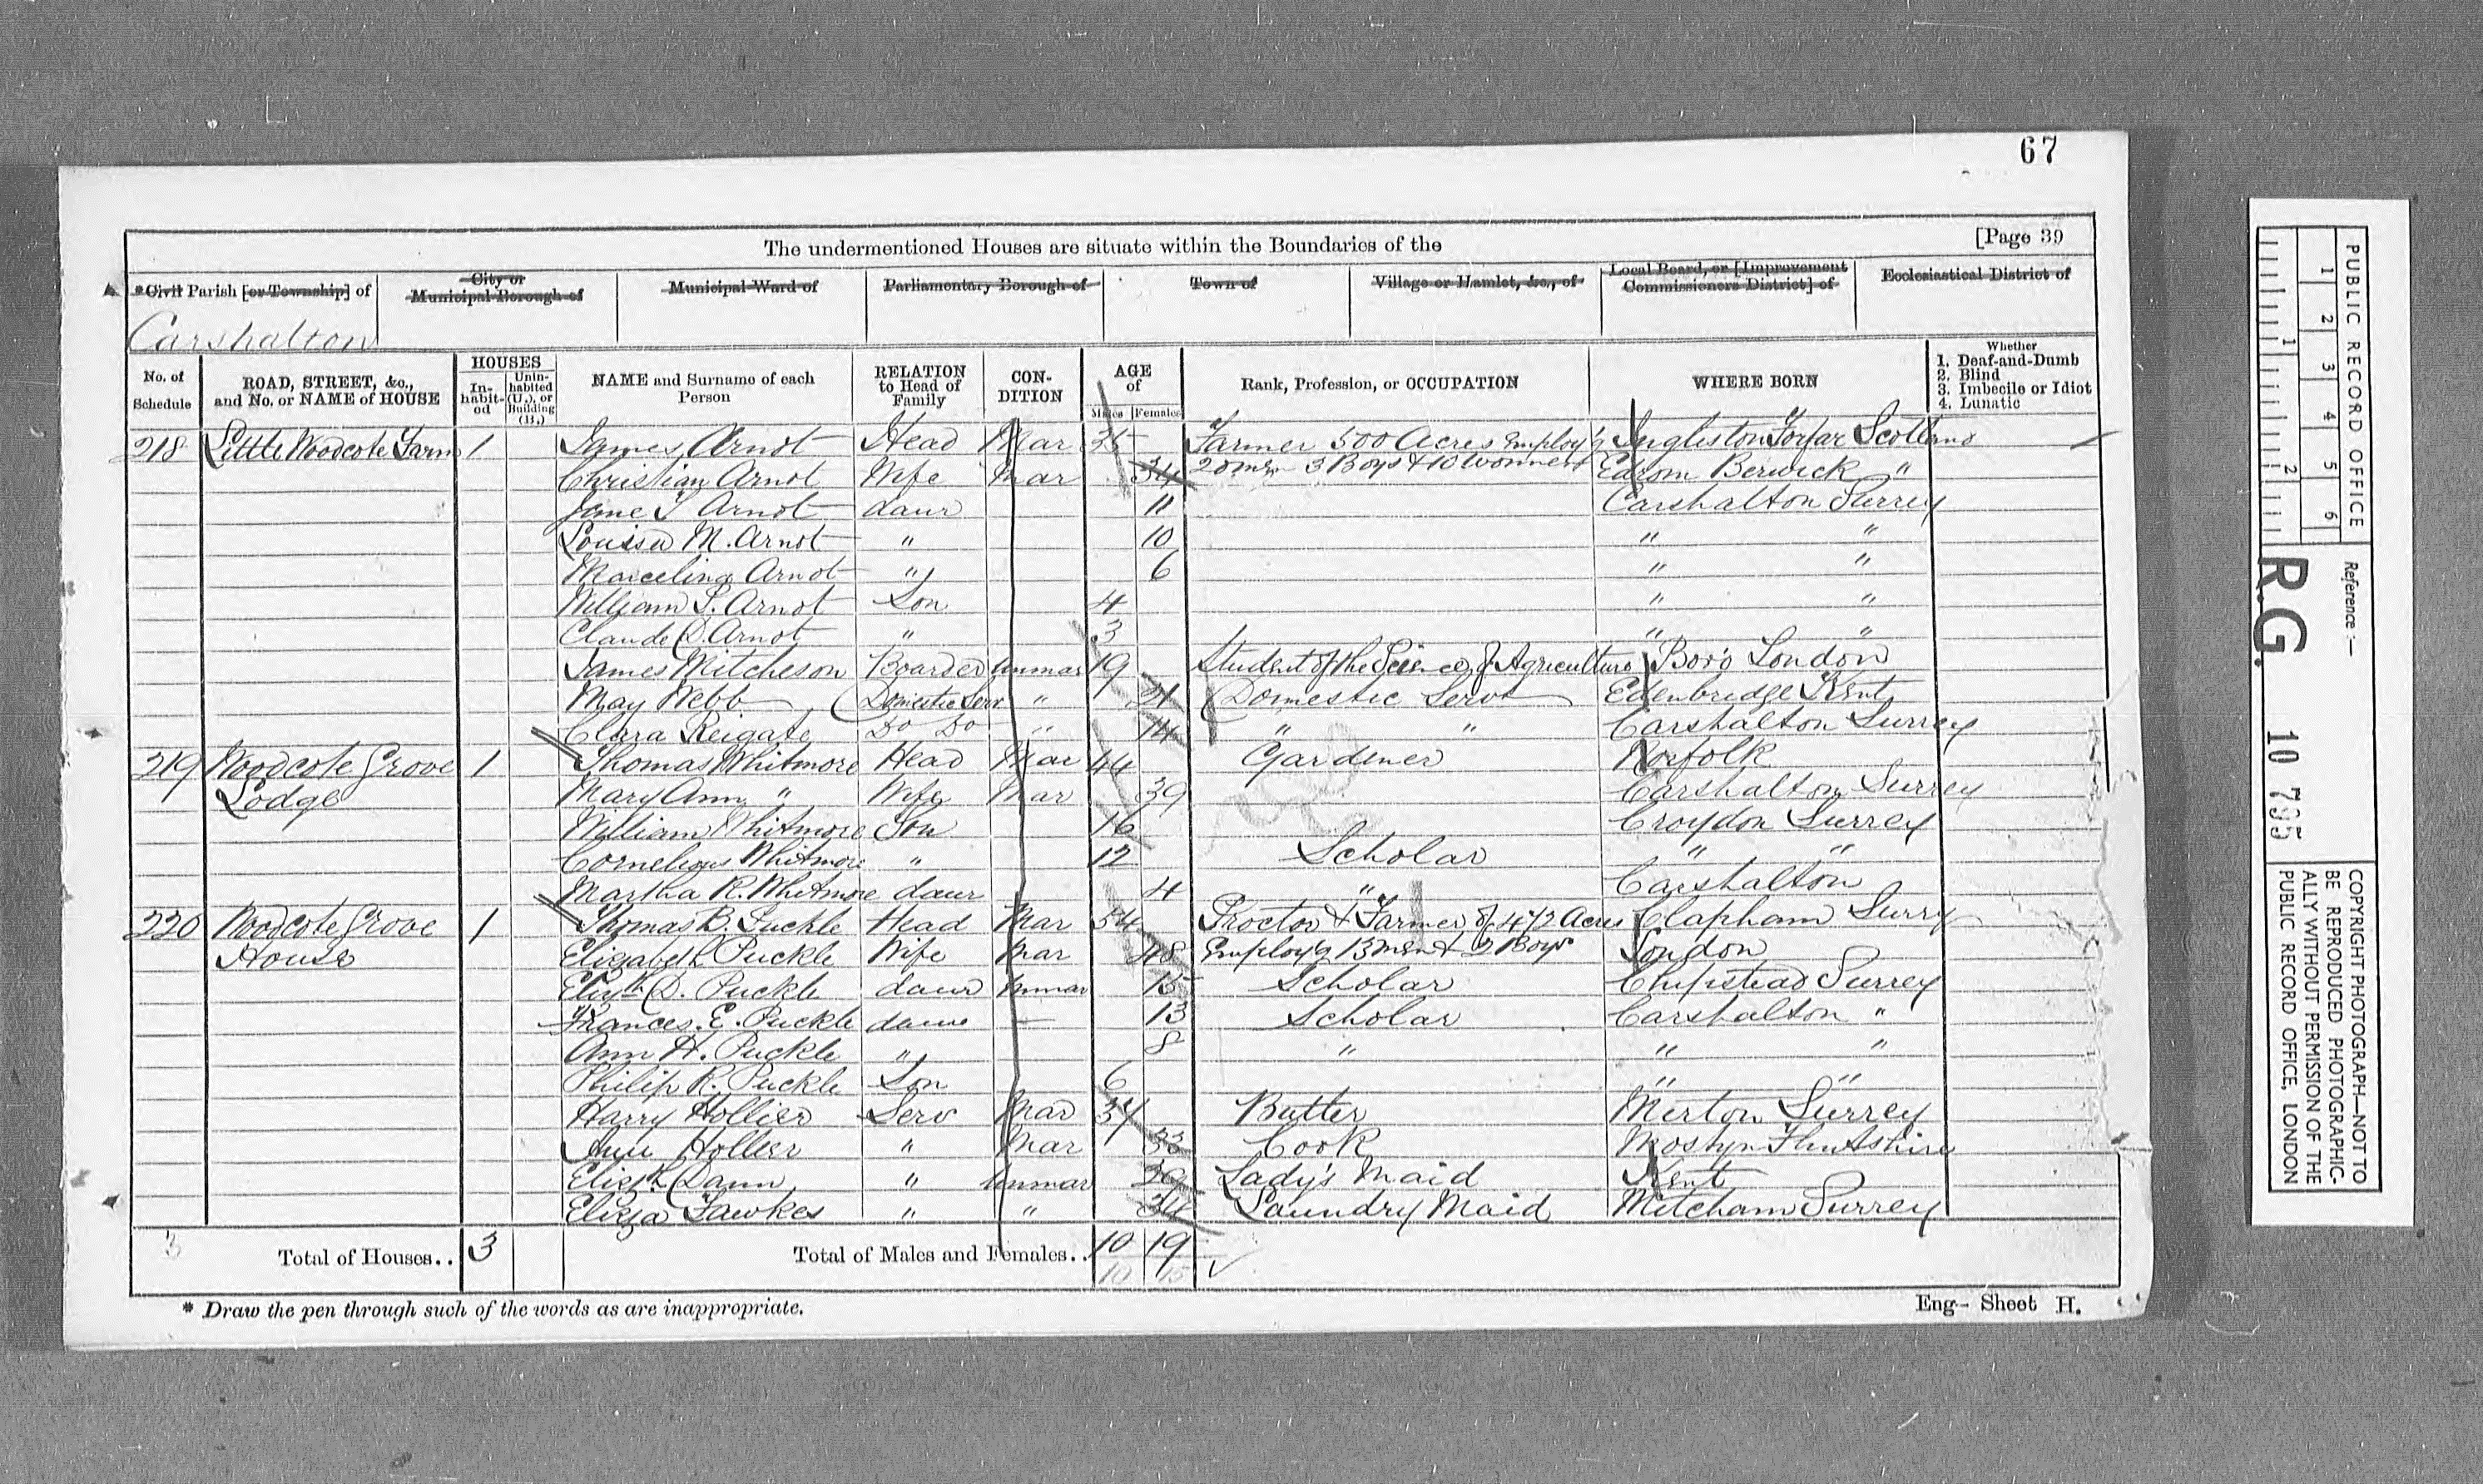 67
The undermentioned Houses are situate within the Boundaries of the [Page 39
*Civil Parish [or Township] of City or Municipal Borough of Municipal Ward of Parliamentary Borough of Town of Village or Hamlet, &c., of Local Board, or [Improvement Commissioners District] of Ecclesiastical District of
Carshalton
No. of Schedule ROAD, STREET, &c., and No. or NAME of HOUSE HOUSES In-habit-ed Unin-habited (U.), or Building (B.) NAME and Surname of each Person RELATION to Head of Family CON-DITION AGE of Males Females Rank, Profession, or OCCUPATION WHERE BORN Whether 1. Deaf-and-Dumb 2. Blind 3. Imbecile or Idiot 4. Lunatic
218 Little Woodcote Farm 1 James Arnot Head Mar 35 Farmer 500 Acres Employ'g Ingliston Forfar Scotland
Christian Arnot Wife Mar 34 20 men 3 Boys & 10 women Edrom Berwick "
Jane S Arnot daur 11 Carshalton Surrey
Louisa M. Arnot " 10 " "
Marcelina Arnot " 6 " "
William S. Arnot Son 4 " "
Claude D. Arnot " 3 " "
James Mitcheson Boarder Unmar 19 Student of the Science of Agriculture Boro London
May Webb Domestic Serv " 21 Domestic Servt Edenbridge Kent
Clara Reigate Do Do " 14 " " Carshalton Surrey
219 Woodcote Grove 1 Thomas Whitmore Head Mar 44 Gardener Norfolk
Lodge Mary Ann " Wife Mar 39 Carshalton Surrey
William Whitmore Son 16 Croydon Surrey
Cornelious Whitmore " 12 Scholar " "
Martha R. Whitmore daur 4 " Carshalton
220 Woodcote Grove 1 Thomas B. Puckle Head Mar 54 Proctor & Farmer of 472 Acres Clapham Surry
House Elizabeth Puckle Wife Mar 48 Employ'g 13 men & 2 Boys London
Elizth D. Puckle daur Unmar 15 Scholar Chipstead Surrey
Frances. E. Puckle daur — 13 Scholar Carshalton "
Ann H. Puckle " 8 " " "
Philip R. Puckle Son 6 " "
Harry Hollier Serv Mar 34 Butler Merton Surrey
Ann Hollier " Mar 33 Cook Mostyn Flintshire
Elizth Dann " Unmar 29 Lady's Maid Kent
Eliza Fawkes " " 34 Laundry Maid Mitcham Surrey
3 Total of Houses.. 3 Total of Males and Females.. 10 19
10 15
* Draw the pen through such of the words as are inappropriate. Eng- Sheet H.
PUBLIC RECORD OFFICE
1 2 3 4 5 6
1 2
Reference :-
R.G. 10 795
COPYRIGHT PHOTOGRAPH—NOT TO
BE REPRODUCED PHOTOGRAPHIC-
ALLY WITHOUT PERMISSION OF THE
PUBLIC RECORD OFFICE, LONDON